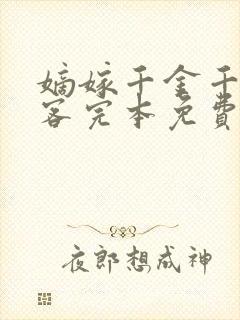 嫡嫁千金千
客完本免費
夜郎想成神